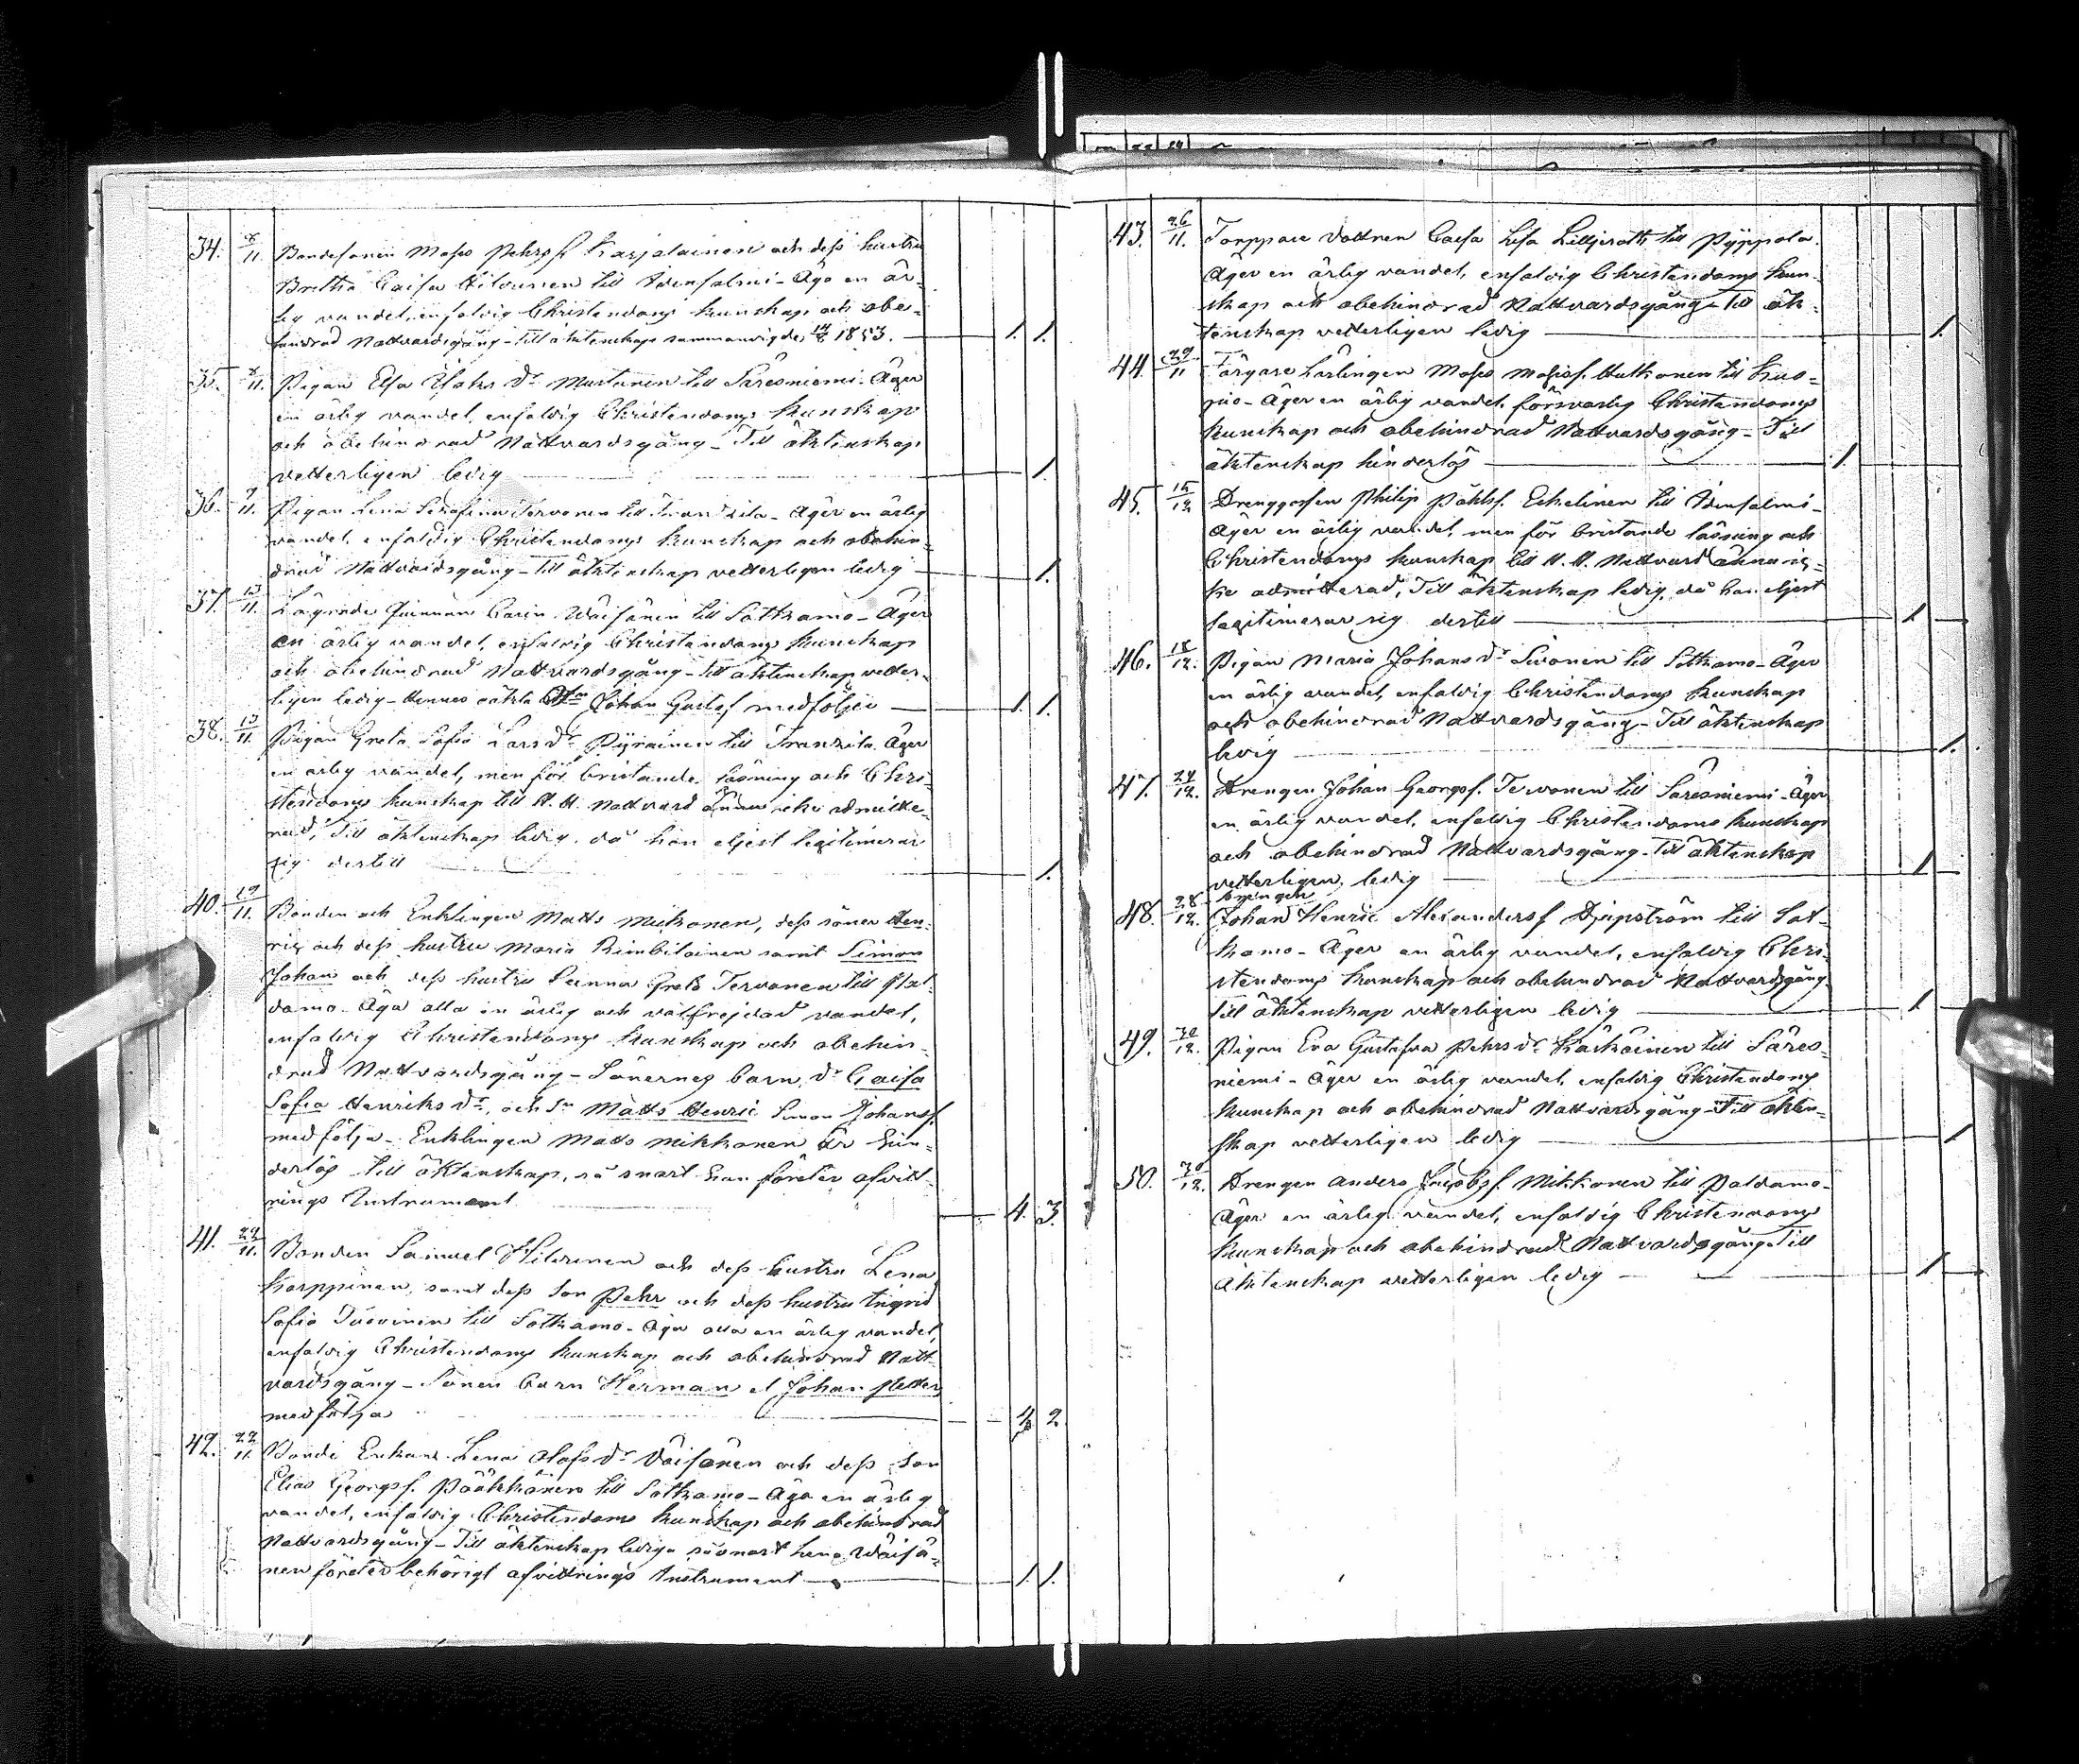 34. 8/11. Bondesonen Moses Pehrss. Karjalainen och dess hustru
Britha Caisa Hilvunen till Idensalmi - Äga en är-
lig vandel, enfaldig Christendoms kunskap och obe-
hindrad Nattvardsgång - Till äktenskap sammanvigde 1853. 1. 1.
35. 8/11. Pigan Elsa Isaks dr Mustonen till Säresniemi - Äger
en ärlig vandel, enfaldig Christendoms kunskap
och obehindrad Nattvardsgång - Till äktenskap
vetterligen ledig 1.
36. 9/11. Pigan Lena Serafina Tervonen till Frantsila - Äger en ärlig
vandel, enfaldig Christendoms kunskap och obehin-
drad Nattvardsgång - Till äktenskap vetterligen ledig 1.
37. 13/11. Lägrade Quinnan Carin Väisänen till Sotkamo - Äger
en ärlig vandel, enfaldig Christendoms kunskap
och obehindrad Nattvardsgång - till äktenskap vetter-
ligen ledig - Hennes oäkta Johan Gustaf medföljer 1. 1.
38. 13/11. Pigan Greta Sofia Lars dr Pyräinen till Frantsila Äger
en ärlig vandel, men för bristande läsning och Chri-
stendoms kunskap till H. H. Nattvard ännu icke admitte-
rad, Till äktenskap ledig, då hon eljest legitimerar
sig dertill 1.
40. 19/11. Bonden och Enklingen Matts Mickonen, dess söner Hen-
ric och dess hustru Maria Rimbiläinen samt Simon
Johan och dess hustru Sanna Greta Tervonen till Pal-
damo - Äga alla en ärlig och välfrejdad vandel,
enfaldig Christendoms kunskap och obehin-
drad Nattvardsgång - Sönernes barn dr Caisa
Sofia Henriks dr, och Sn Matts Henric Simon Johanss.
medfölja - Enklingen Matts Mikkonen är hin-
derlös till äktenskap, så snart han företer afvitt-
rings Instrument 4. 3.
41. 22/11. Bonden Samuel Hilvunen och dess hustru Lena
Karppinen, samt dess son Pehr och dess hustru Ingrid
Sofia Tuovinen till Sotkamo - Äga alla en ärlig vandel,
enfaldig Christendoms kunskap och obehindrad Natt-
vardsgång - Sonen barn Herman et Johan Petter
medfölja 4. 2.
42. 22/11. Bonde Enkan Lena Olofs dr Väisänen och dess Son
Elias Georgss. Pääkkönen till Sotkamo - Äga en ärlig
vandel, enfaldig Christendoms kunskap och obehindrad
Nattvardsgång - Till äktenskap lediga såsnart Lena Wäisä-
nen företer behörigt afvittrings Instrument 1. 1.
43. 26/11. Torppare dottren Caisa Lisa Lilljeroth till Pyppola.
Äger en ärlig vandel, enfaldig Christendoms kun-
skap och obehindrad Nattvardsgång - Till äk-
tenskap vetterligen ledig 1.
44. 29/11 Färgare Lärlingen Moses Mosess. Huttunen till Kuo-
pio - Äger en ärlig vandel, försvarlig Christendoms
kunskap och obehindrad Nattvardsgång - Till
äktenskap hinderlös 1.
45. 15/12 Drenggossen Philip Påhlss. Eskelinen till Idensalmi -
Äger en ärlig vandel, men för bristande läsning och
Christendoms kunskap till H. H. Nattvard ännu ic-
ke admitterad, Till äktenskap ledig, då han eljest
legitimerar sig dertill 1
46. 18/12. Pigan Maria Johans dr Sivonen till Sotkamo - Äger
en ärlig vandel, enfaldig Christendoms kunskap
och obehindrad Nattvardsgång - Till äktenskap
ledig 1.
47. 24/12. Drengen Johan Georgss. Tervonen till Säresniemi - Äger
en ärlig vandel, enfaldig Christendoms kunskap
och obehindrad Nattvardsgång - Till äktenskap
vetterligen ledig 1
48. 28/12. Drengen
Johan Henric Alexanderss. Djupström till Sot-
kamo - Äger en ärlig vandel, enfaldig Chri-
stendoms kunskap och obehindrad Nattvardsgång
Till äktenskap vetterligen ledig 1
49. 30/12. Pigan Eva Gustafva Pehrs dr Karkainen till Säres-
niemi - Äger en ärlig vandel, enfaldig Christendoms
kunskap och obehindrad Nattvardsgång - Till äkten-
skap vetterligen ledig 1
50. 30/12. Drengen Anders Jacobss. Mikkonen till Paldamo -
Äger en ärlig vandel, enfaldig Christendoms
kunskap och obehindrad Nattvardsgång Till
äktenskap vetterligen ledig 1